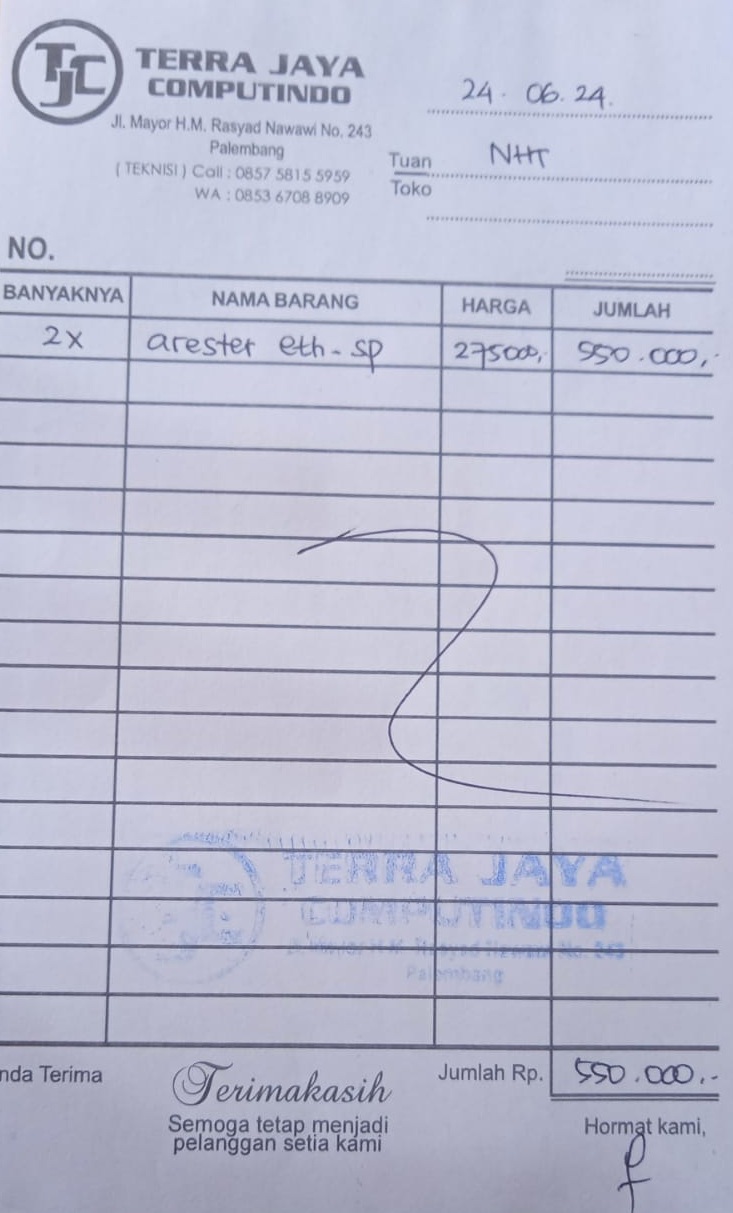 TJC TERRA JAYA
COMPUTINDO
Jl. Mayor H.M. Rasyad Nawawi No. 243
Palembang
( TEKNISI ) Call : 0857 5815 5959
WA : 0853 6708 8909
24. 06. 24.
Tuan NHT
Toko
NO.
BANYAKNYA NAMA BARANG HARGA JUMLAH
2x arester eth-sp 275000,- 550.000,-
TERRA JAYA
COMPUTINDO
Jl. Mayor H.M. Rasyad Nawawi No. 243
Palembang
nda Terima Terimakasih Jumlah Rp. 550.000.-
Semoga tetap menjadi
pelanggan setia kami
Hormat kami,